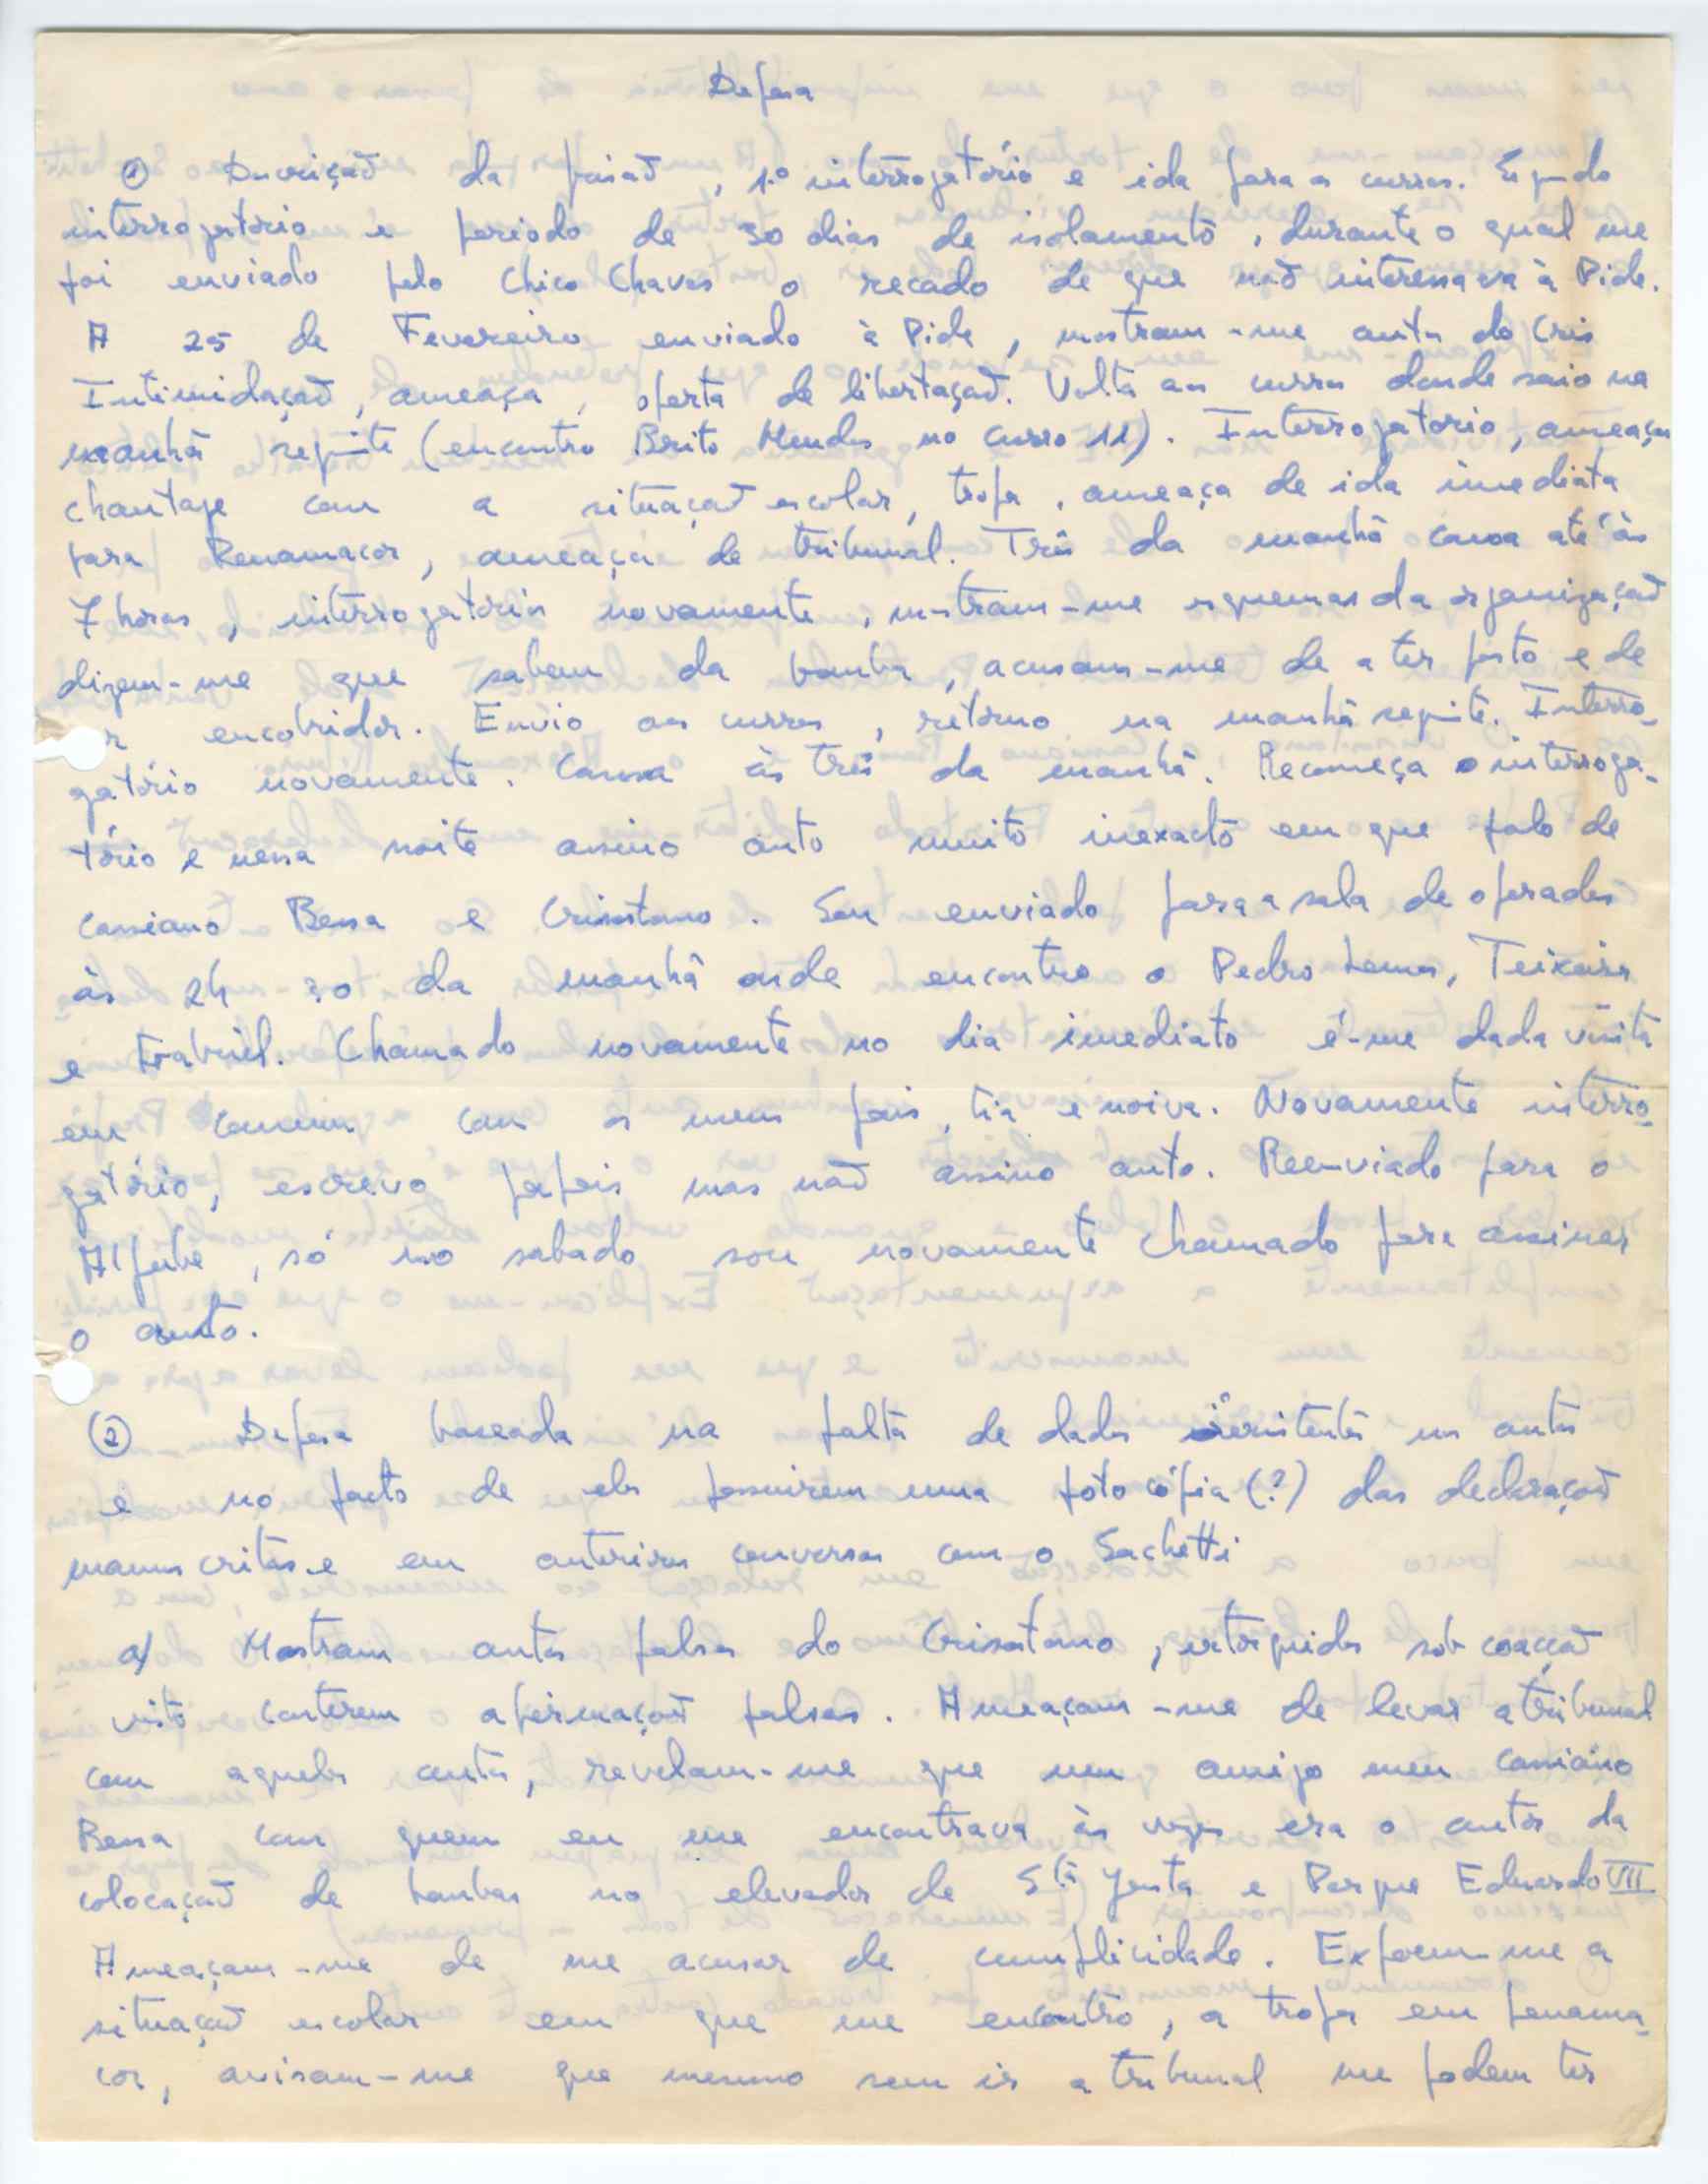 Defesa
① Descrição da prisão, 1.º interrogatório e ida para os curros. Segundo
interrogatório e periodo de 30 dias de isolamento, durante o qual me
foi enviado pelo Chico Chaves o recado de que não interessava à Pide.
A 25 de Fevereiro enviado à Pide, mostram-me autos do Cris
Intimidação, ameaça, oferta de libertação. Volta aos curros donde saio na
manhã seguinte (encontro Brito Mendes no curro 11). Interrogatorio, ameaças
chantage com a situação escolar, tropa, ameaça de ida imediata
para Penamacor, ameaça de tribunal. Três da manhã cama até às
7 horas, interrogatório novamente, mostram-me esquemas da organização
dizem-me que sabem da bomba, acusam-me de a ter posto e de
ser encobridor. Envio aos curros, retorno na manhã seguinte. Interro-
gatório novamente. Cama às três da manhã. Recomeça o interroga-
tório e nessa noite assino auto muito inexacto em que falo de
Cassiano Bessa e Crisostomo. Sou enviado para a sala de operados
às 2h-30 da manhã onde encontro o Pedro Lemos, Teixeira
e Gabriel. Chamado novamente no dia imediato é-me dada visita
em comum com os meus pais, tia e noiva. Novamente interro-
gatório, escrevo papeis mas não assino auto. Reenviado para o
Aljube, só no sabado sou novamente chamado para assinar
o auto.
② Defesa baseada na falta de dados existentes nos autos
e no facto de eles possuirem uma fotocópia (?) das declarações
manuscritas e em anteriores conversas com o Sachetti
a) Mostram autos falsos do Crisostomo, extorquidos sob coacção
visto conterem afirmações falsas. Ameaçam-me de levar a tribunal
com aqueles autos, revelam-me que um amigo meu Cassiano
Bessa com quem eu me encontrava às vezes era o autor da
colocação de bombas no elevador de Stª Justa e Parque Eduardo VII
Ameaçam-me de me acusar de cumplicidade. Expoem-me a
situação escolar em que me encontro, a tropa em penama-
cor, avisam-me que mesmo sem ir a tribunal me podem ter